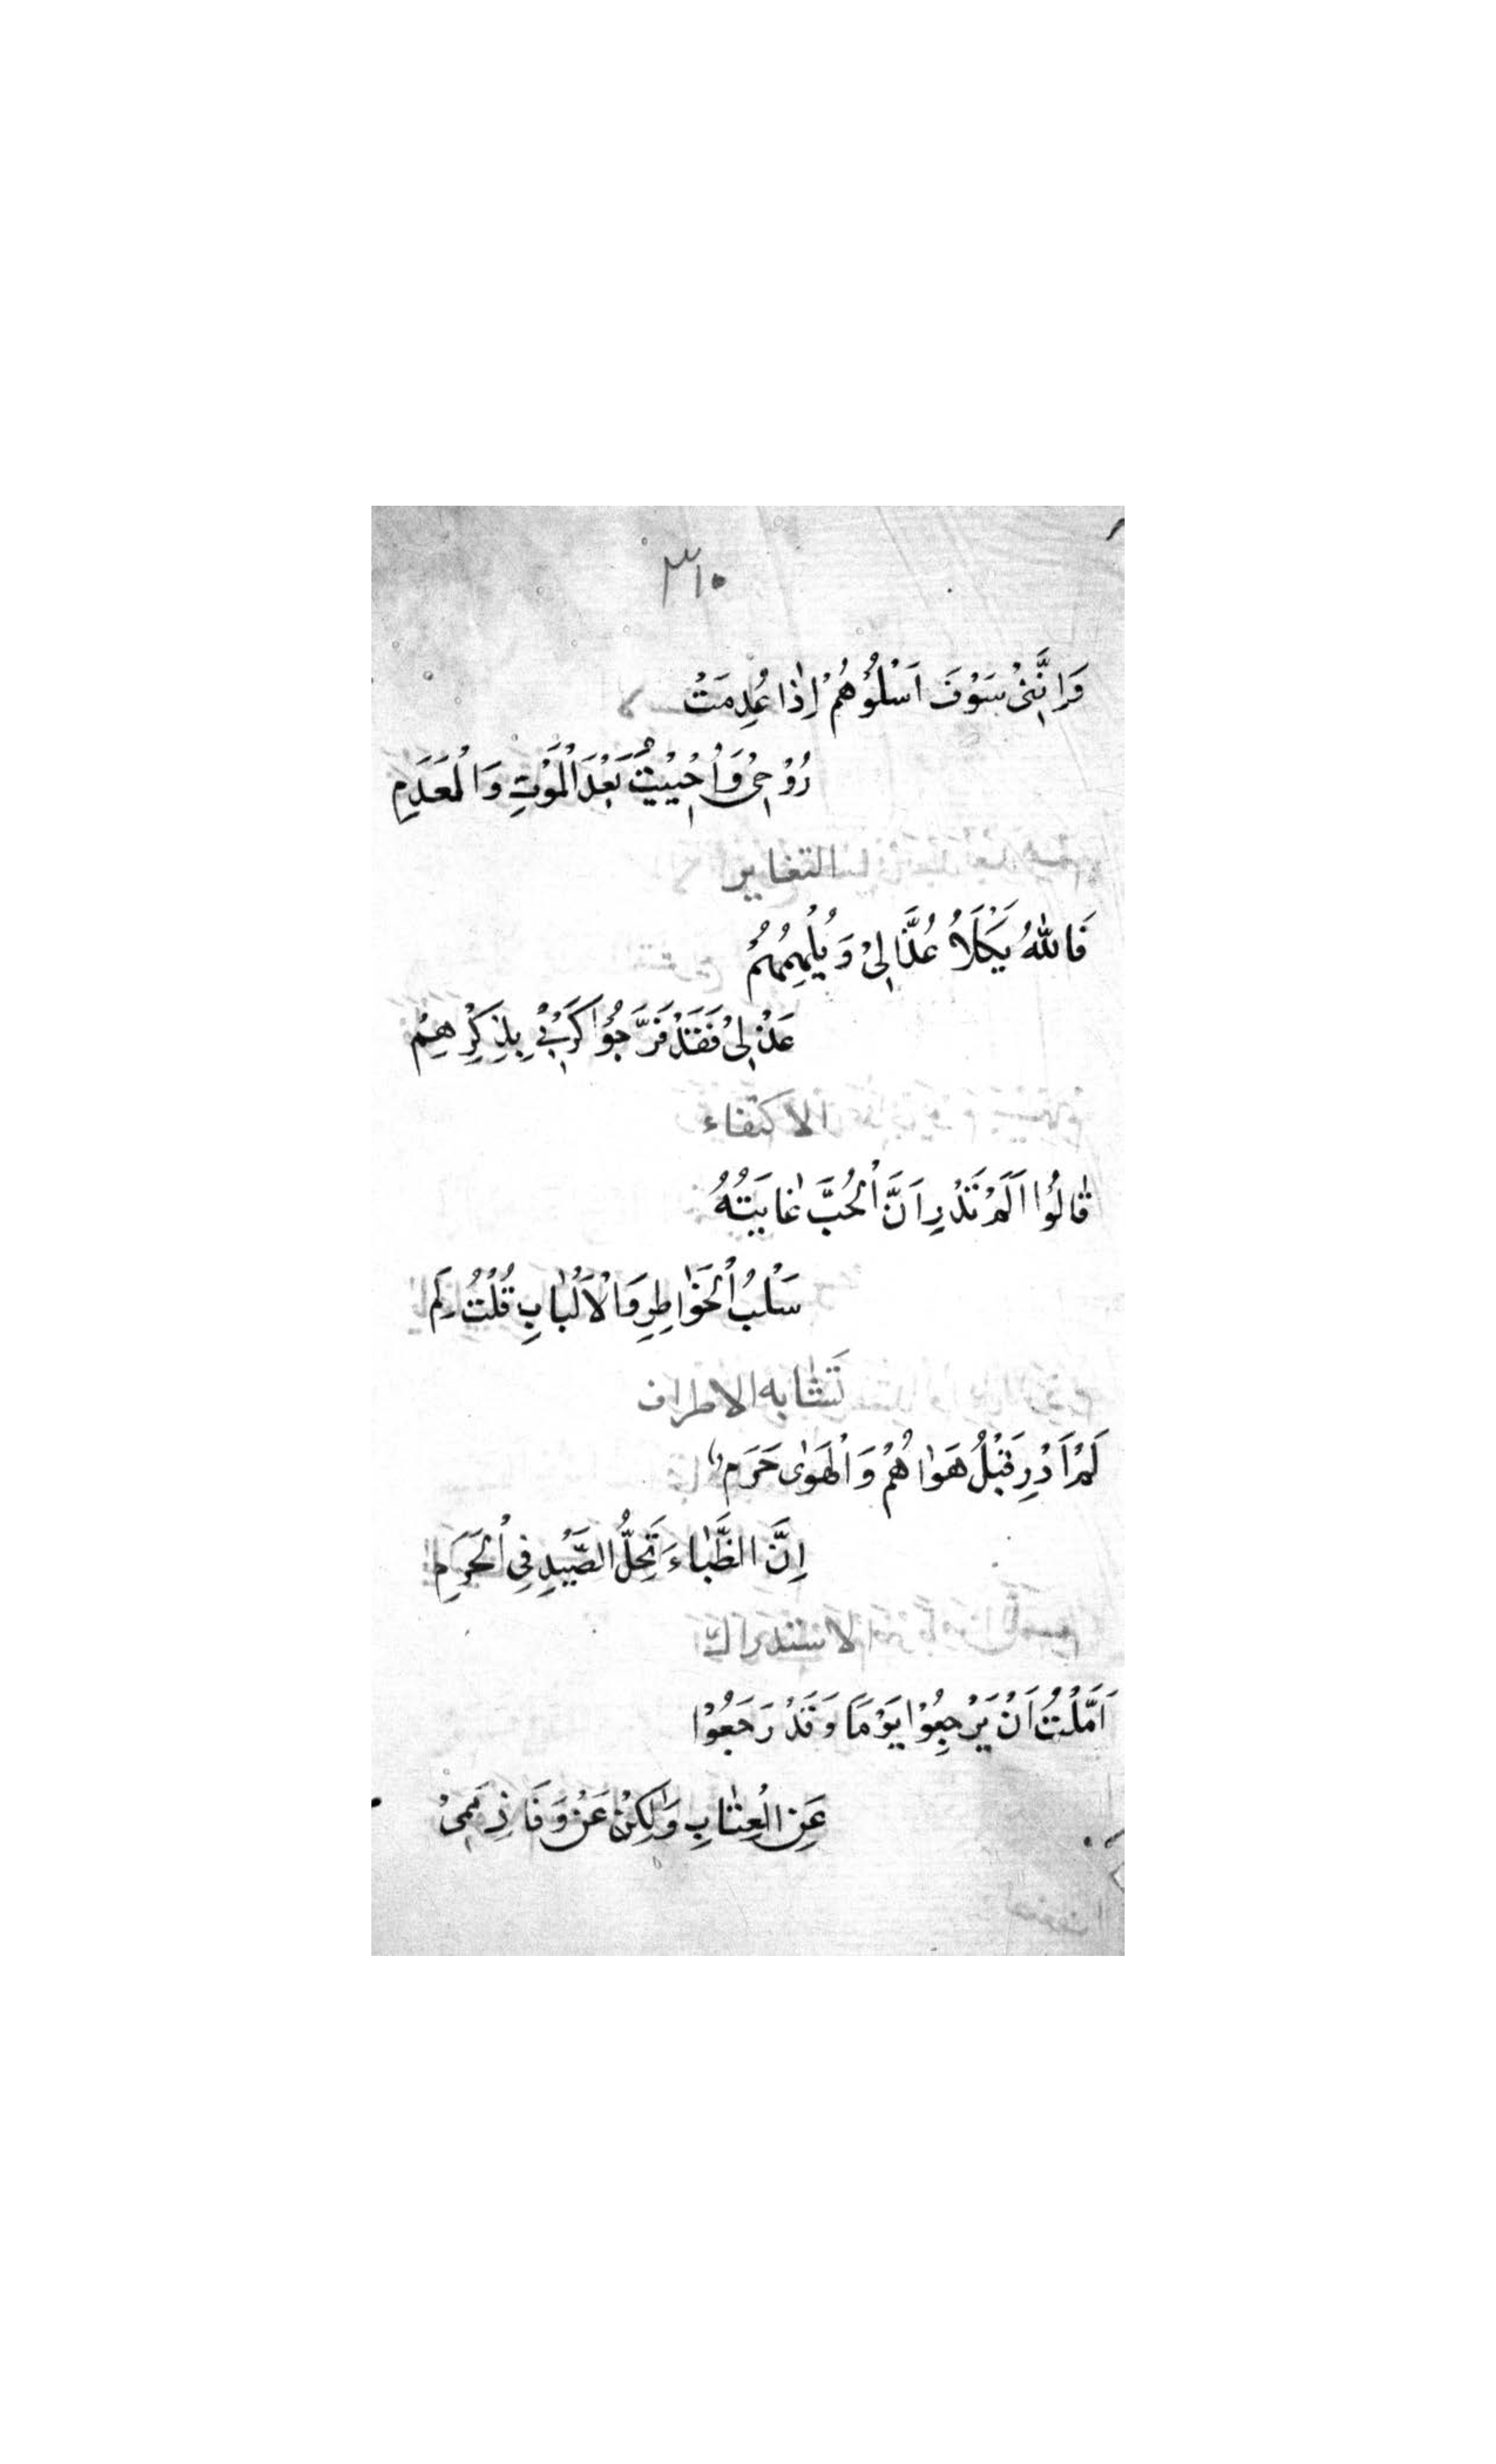 ٣١٥
وَاِنَّنِيْ سَوْفَ اَسْلُوْهُمْ اِذَا عُدِمَتْ
رُوْحِيْ وَاُحْيِيْتُ بَعْدَ الْمَوْتِ وَالْعَدَمِ
التغاير
فَاللهُ يَكْلَاُ عُذَّالِيْ وَيُلْهِمُهُمْ
عَذْلِيْ فَقَدْ فَرَّجُوْا كَرْبِيْ بِذِكْرِهِمْ
الاكتفاء
قَالُوْا اَلَمْ تَدْرِ اَنَّ الْحُبَّ غَايَتُهُ
سَلْبُ الْخَوَاطِرِ وَالْاَلْبَابِ قُلْتُ لَمِ
تَشَابه الاطراف
لَمْ اَدْرِ قَبْلَ هَوَاهُمْ وَالْهَوٰى حَرَم
اِنَّ الظِّبَاءَ تَحِلُّ الصَّيْدِ فِي الْحَرَمِ
الاستدراك
اَمَّلْتُ اَنْ يَرْجِعُوْا يَوْمًا وَقَدْ رَجَعُوْا
عَنِ الْعِتَابِ وَلٰكِنْ عَنْ وَفَا ذِمَمِيْ